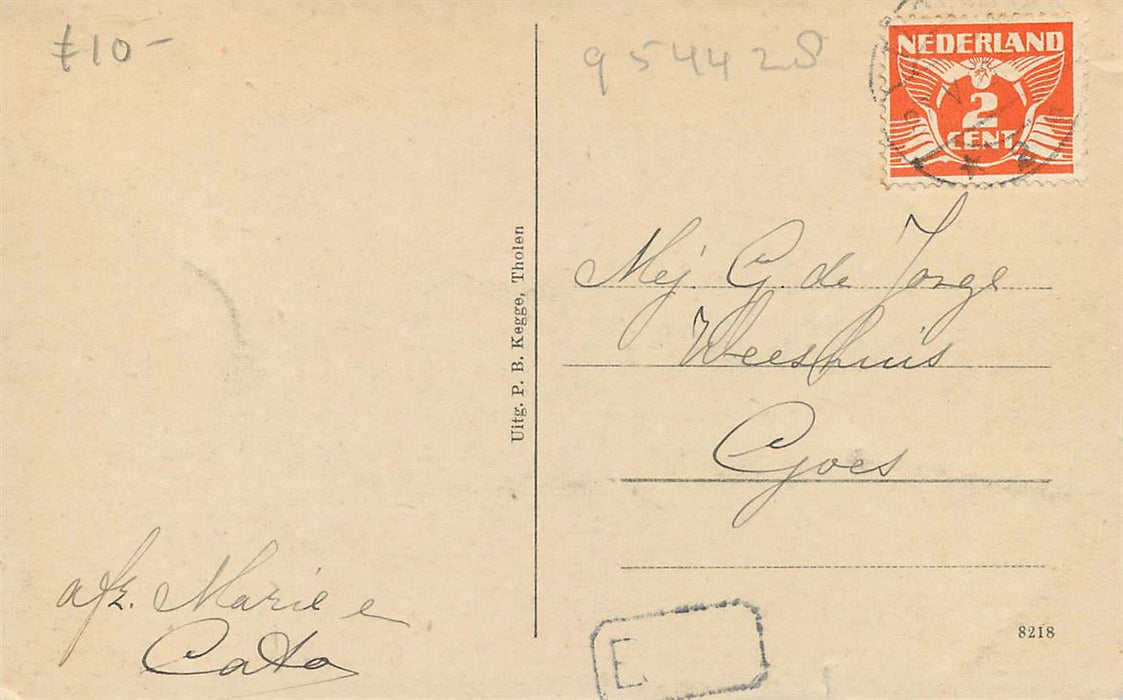 £10-
954428
NEDERLAND
2
CENT
Mej. G. de Jonge
Weeshuis
Goes
Uitg. P. B. Kegge, Tholen
afz. Marie e
Cato
E
8218